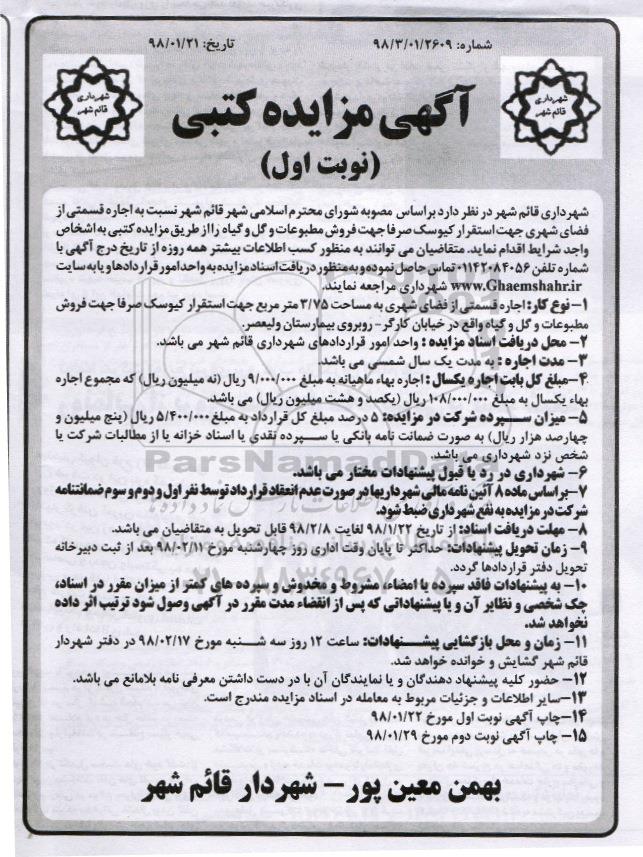 شماره: ۹۸/۳/۰۱/۲۶۰۹
تاریخ: ۹۸/۰۱/۲۱
شهرداری
قائم شهر
شهرداری
قائم شهر
آگهی مزایده کتبی
(نوبت اول)
شهرداری قائم شهر در نظر دارد براساس مصوبه شورای محترم اسلامی شهر قائم شهر نسبت به اجاره قسمتی از
فضای شهری جهت استقرار کیوسک صرفا جهت فروش مطبوعات و گل و گیاه را از طریق مزایده کتبی به اشخاص
واجد شرایط اقدام نماید. متقاضیان می توانند به منظور کسب اطلاعات بیشتر همه روزه از تاریخ درج آگهی با
شماره تلفن ۰۱۱۴۲۰۸۴۰۵۶ تماس حاصل نموده و به منظور دریافت اسناد مزایده به واحد امور قراردادها و یا به سایت
www.Ghaemshahr.ir شهرداری مراجعه نمایند.
۱- نوع کار: اجاره قسمتی از فضای شهری به مساحت ۳/۷۵ متر مربع جهت استقرار کیوسک صرفا جهت فروش
مطبوعات و گل و گیاه واقع در خیابان کارگر- روبروی بیمارستان ولیعصر.
۲- محل دریافت اسناد مزایده : واحد امور قراردادهای شهرداری قائم شهر می باشد.
۳- مدت اجاره : به مدت یک سال شمسی می باشد.
۴- مبلغ کل بابت اجاره یکسال : اجاره بهاء ماهیانه به مبلغ ۹/۰۰۰/۰۰۰ ریال (نه میلیون ریال) که مجموع اجاره
بهاء یکسال به مبلغ ۱۰۸/۰۰۰/۰۰۰ ریال (یکصد و هشت میلیون ریال) می باشد.
۵- میزان سپرده شرکت در مزایده: ۵ درصد مبلغ کل قرارداد به مبلغ ۵/۴۰۰/۰۰۰ ریال (پنج میلیون و
چهارصد هزار ریال) به صورت ضمانت نامه بانکی یا سپرده نقدی یا اسناد خزانه یا از مطالبات شرکت یا
شخص نزد شهرداری می باشد.
۶- شهرداری در رد یا قبول پیشنهادات مختار می باشد.
۷- براساس ماده ۸ آئین نامه مالی شهرداریها در صورت عدم انعقاد قرارداد توسط نفر اول و دوم و سوم ضمانتنامه
شرکت در مزایده به نفع شهرداری ضبط شود.
۸- مهلت دریافت اسناد: از تاریخ ۹۸/۱/۲۲ لغایت ۹۸/۲/۸ قابل تحویل به متقاضیان می باشد.
۹- زمان تحویل پیشنهادات: حداکثر تا پایان وقت اداری روز چهارشنبه مورخ ۹۸/۰۲/۱۱ بعد از ثبت دبیرخانه
تحویل دفتر قراردادها گردد.
۱۰- به پیشنهادات فاقد سپرده یا امضاء، مشروط و مخدوش و سپرده های کمتر از میزان مقرر در اسناد،
چک شخصی و نظایر آن و یا پیشنهاداتی که پس از انقضاء مدت مقرر در آگهی وصول شود ترتیب اثر داده
نخواهد شد.
۱۱- زمان و محل بازگشایی پیشنهادات: ساعت ۱۲ روز سه شنبه مورخ ۹۸/۰۲/۱۷ در دفتر شهردار
قائم شهر گشایش و خوانده خواهد شد.
۱۲- حضور کلیه پیشنهاد دهندگان و یا نمایندگان آن با در دست داشتن معرفی نامه بلامانع می باشد.
۱۳- سایر اطلاعات و جزئیات مربوط به معامله در اسناد مزایده مندرج است.
۱۴- چاپ آگهی نوبت اول مورخ ۹۸/۰۱/۲۲
۱۵- چاپ آگهی نوبت دوم مورخ ۹۸/۰۱/۲۹
بهمن معین پور- شهردار قائم شهر
ParsNamadData